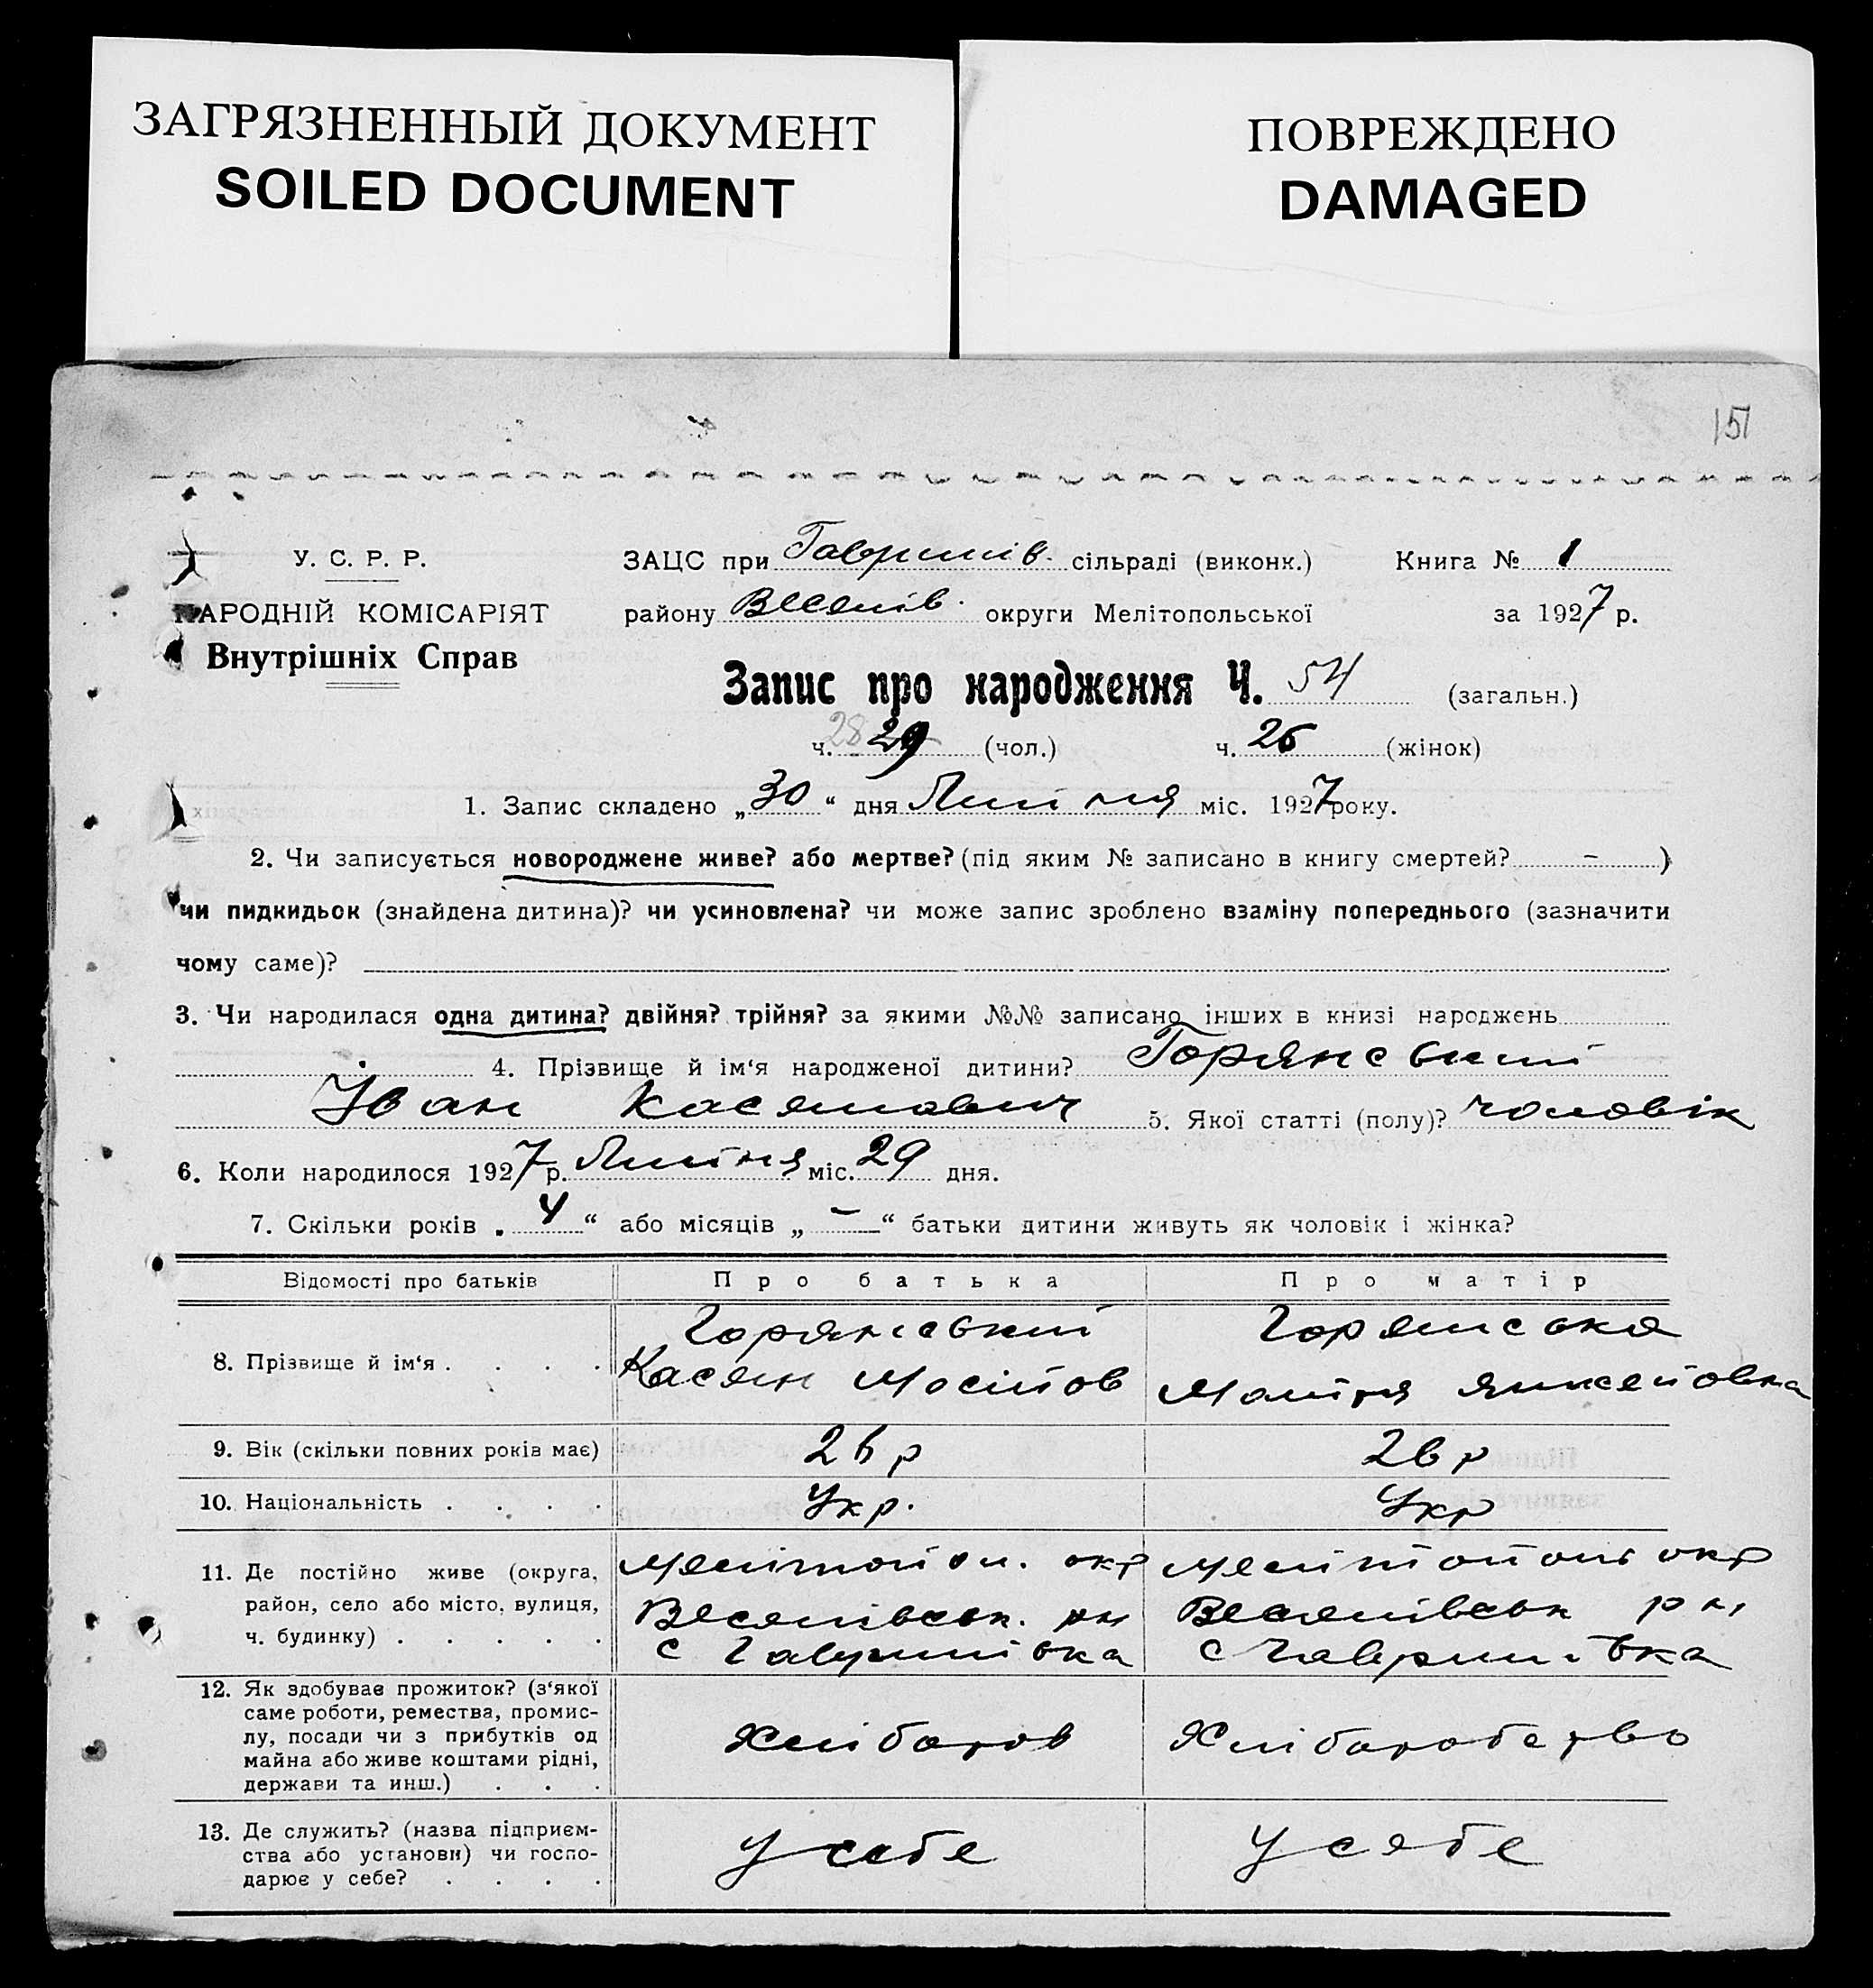 ЗАГРЯЗНЕННЫЙ ДОКУМЕНТ
SOILED DOCUMENT
ПОВРЕЖДЕНО
DAMAGED
151
У. С. Р. Р.
НАРОДНІЙ КОМІСАРІЯТ
Внутрішніх Справ
ЗАЦС при Гаврилів. сільраді (виконк.) Книга № 1
району Веселів. округи Мелітопольської за 1927 р.
Запис про народження Ч. 54 (загальн.)
ч. 28 29 (чол.) ч. 26 (жінок)
1. Запис складено „30“ дня Липня міс. 1927 року.
2. Чи записується новороджене живе? або мертве? (під яким № записано в книгу смертей? – )
чи пидкидьок (знайдена дитина)? чи усиновлена? чи може запис зроблено взаміну попереднього (зазначити
чому саме)?
3. Чи народилася одна дитина? двійня? трійня? за якими №№ записано інших в книзі народжень
4. Прізвище й ім‘я народженої дитини? Горянський
Іван Касянович 5. Якої статті (полу)? чоловік
6. Коли народилося 1927 р. Липня міс. 29 дня.
7. Скільки років „4“ або місяців „–“ батьки дитини живуть як чоловік і жінка?
Відомості про батьків Про батька Про матір
8. Прізвище й ім‘я . . . . Горянський Горянська
Касян Мосійов
9. Вік (скільки повних років має) 26 р 26 р
10. Національність . . . . Укр. Укр
11. Де постійно живе (округа,
район, село або місто, вулиця,
ч. будинку) . . . . .
Мелітопол. окр Мелітополь окр
Веселівськ. рн Веселівськ рн
с Гаврилівка с Гаврилівка
12. Як здобуває прожиток? (з‘якої
саме роботи, ремества, промис-
лу, посади чи з прибутків од
майна або живе коштами рідні,
держави та инш.) . . .
Хлібороб Хліборобство
13. Де служить? (назва підприєм-
ства або установи) чи госпо-
дарює у себе? . . . .
У себе У себе